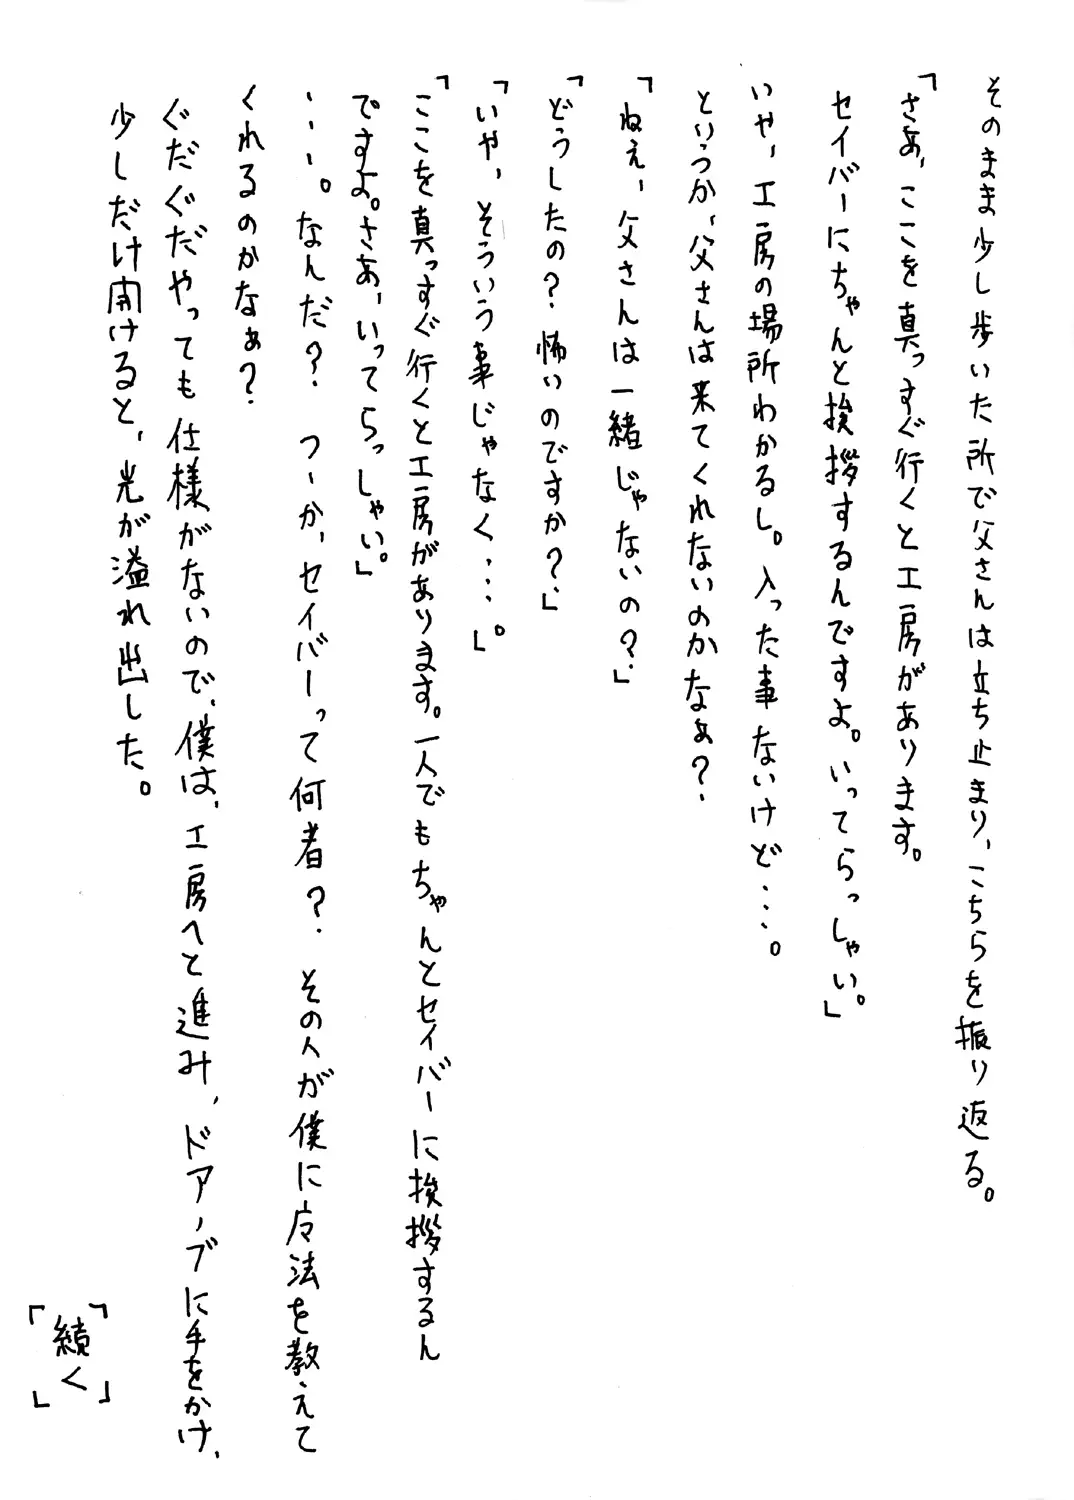 そのまま少し歩いた所で父さんは立ち止まり、こちらを振り返る。
「さあ、ここを真っすぐ行くと工房があります。
セイバーにちゃんと挨拶するんですよ。いってらっしゃい。」
いや、工房の場所わかるし。入った事ないけど・・・。
というか、父さんは来てくれないのかなぁ?
「ねぇ、父さんは一緒じゃないの?」
「どうしたの?怖いのですか?」
「いや、そういう事じゃなく・・・。」
「ここを真っすぐ行くと工房があります。一人でもちゃんとセイバーに挨拶するん
ですよ。さあ、いってらっしゃい。」
・・・。なんだ? つーか、セイバーって何者? その人が僕に魔法を教えて
くれるのかなぁ?
ぐだぐだやっても仕様がないので、僕は、工房へと進み、ドアノブに手をかけ、
少しだけ開けると、光が溢れ出した。
「「続く」」